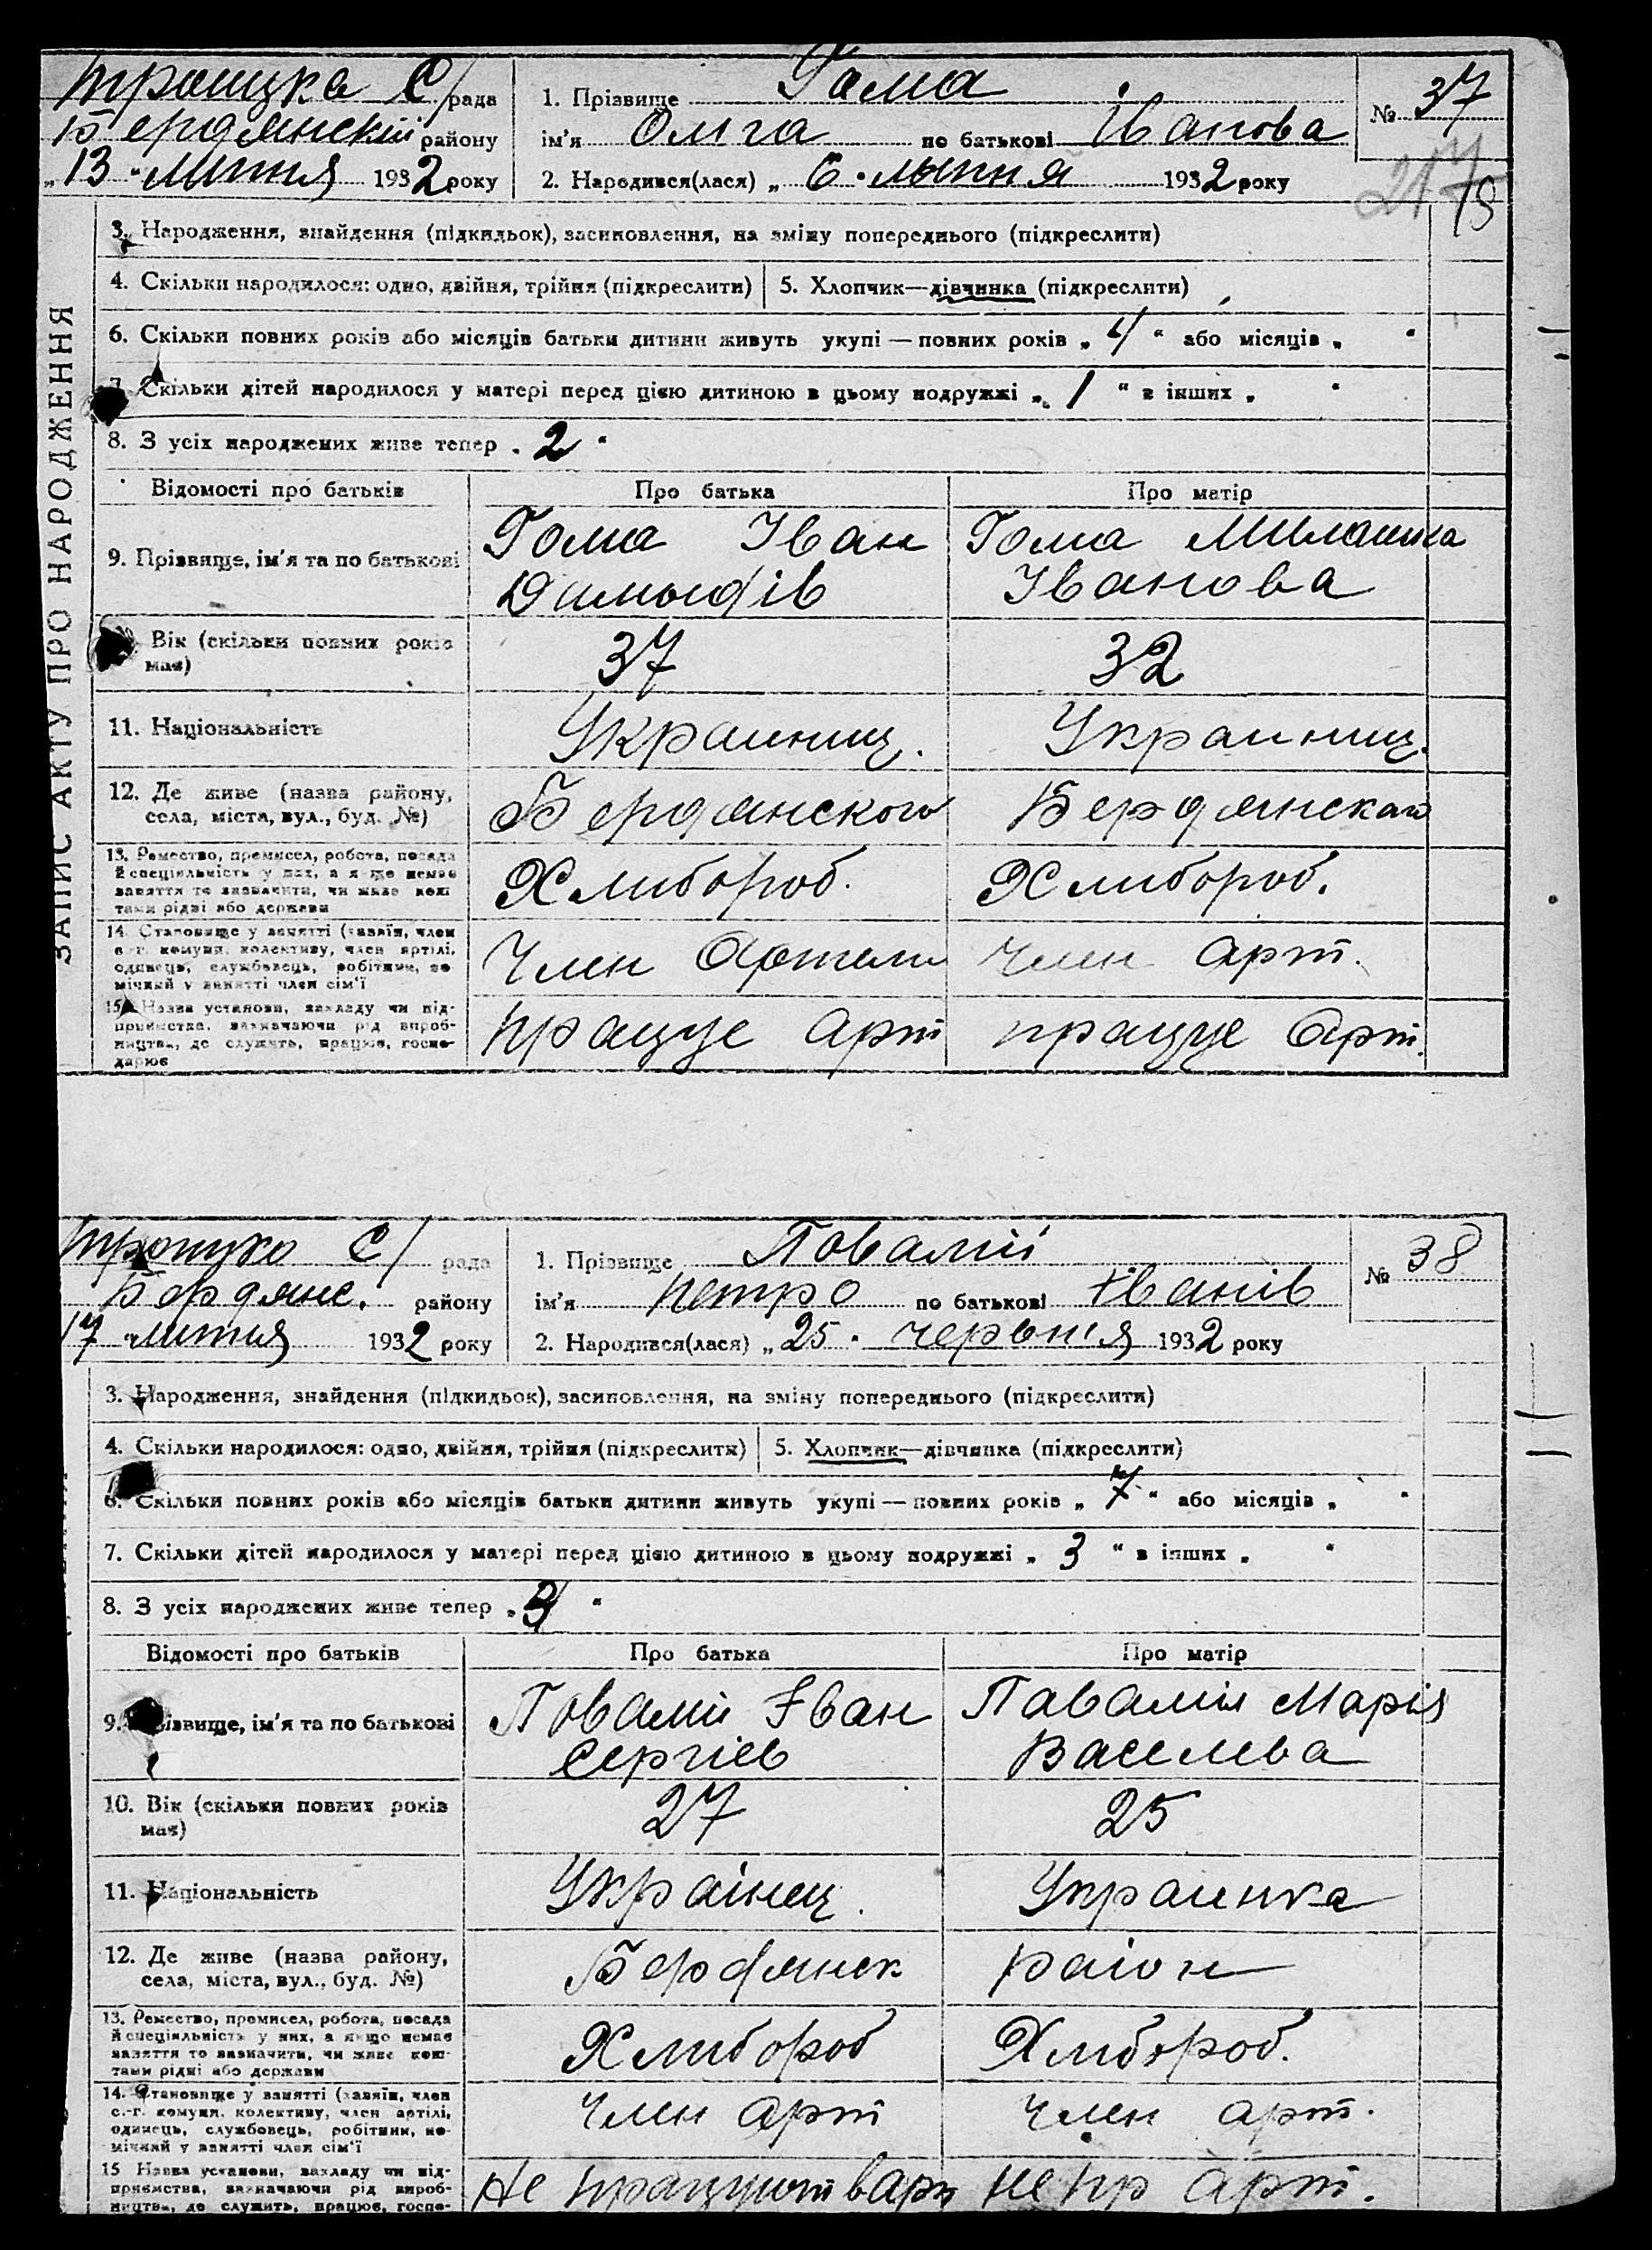 Троицка С/рада
Бердянский району
„13 " липня 1932 року
1. Прізвище Гома
ім'я Олга по батькові Іванова
2. Народився(лася) „ 6 " лыпня 1932 року
№ 37
ЗАПИС АКТУ ПРО НАРОДЖЕННЯ
3. Народження, знайдення (підкидьок), засиновлення, на зміну попереднього (підкреслити)
4. Скільки народилося: одно, двійня, трійня (підкреслити) 5. Хлопчик—дівчинка (підкреслити)
6. Скільки повних років або місяців батьки дитини живуть укупі — повних років „ 4 " або місяців „ "
7. Скільки дітей народилося у матері перед цією дитиною в цьому подружжі „ 1 " в інших „ "
8. З усіх народжених живе тепер „ 2 "
Відомості про батьків Про батька Про матір
9. Прізвище, ім'я та по батькові
Гома Іван
Гома Милашка
Іванова
Вік (скільки повних років має) 37 32
11. Національність Украиниц. Украиниц.
12. Де живе (назва району, села, міста, вул., буд. №) Бердянского Бердянского
13. Ремество, промисел, робота, посада
й спеціяльність у них, а якщо немає
заняття то зазначити, чи живе кош-
тами рідні або держави
Хлибороб. Хлибороб.
14. Становище у занятті (хазяїн, член
с.-г. комуни, колективу, член артілі,
одинець, службовець, робітник, по-
мічний у занятті член сім'ї
Член Артели Член Арт.
15. Назва установи, закладу чи під-
приємства, зазначаючи рід вироб-
ництва, де служить, працює, госпо-
дарює
працуе Арт працуе Арт.
Троицко С/ рада
Бердянс. району
17 липня 1932 року
1. Прізвище Повалий
ім'я Петро по батькові Іванів
2. Народився(лася) „ 25 " червьня 1932 року
№ 38
3. Народження, знайдення (підкидьок), засиновлення, на зміну попереднього (підкреслити)
4. Скільки народилося: одно, двійня, трійня (підкреслити) 5. Хлопчик—дівчинка (підкреслити)
6. Скільки повних років або місяців батьки дитини живуть укупі — повних років „ 7 " або місяців „ "
7. Скільки дітей народилося у матері перед цією дитиною в цьому подружжі „ 3 " в інших „ "
8. З усіх народжених живе тепер „ "
Відомості про батьків Про батька Про матір
9. Прізвище, ім'я та по батькові
Повалий Іван Павалий Марія
Сергієв Васелева
10. Вік (скільки повних років має) 27 25
11. Національність Українец. Украинка
12. Де живе (назва району, села, міста, вул., буд. №) Бердянск раіон
13. Ремество, промисел, робота, посада
й спеціяльність у них, а якщо немає
заняття то зазначити, чи живе кош-
тами рідні або держави
Хлибороб Хлибороб.
14. Становище у занятті (хазяїн, член
с.-г. комуни, колективу, член артілі,
одинець, службовець, робітник, по-
мічний у занятті член сім'ї
Член Арт Член Арт.
15 Назва установи, закладу чи під-
приємства, зазначаючи рід вироб-
ництва, де служить, працює, госпо-
Не працуют в арт не пр Арт.